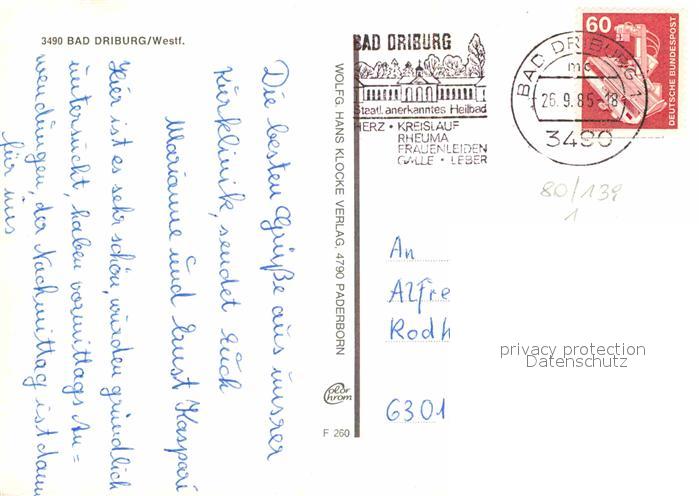 3490 BAD DRIBURG/Westf.
Die besten Grüße aus unsrer
Kurklinik, sendet Euch
Marianne und Ernst Kaspari
Hier ist es sehr schön, wurden gründlich
untersucht, haben vormittags An=
wendungen, der Nachmittag ist dann
für uns
WOLFG. HANS KLOCKE VERLAG, 4790 PADERBORN
Color
chrom
F 260
BAD DRIBURG
Staatl. anerkanntes Heilbad
HERZ · KREISLAUF
RHEUMA
FRAUENLEIDEN
GALLE · LEBER
BAD DRIBURG 1
mc
26.9.85-18
3490
60
DEUTSCHE BUNDESPOST
80/139
1
An
Alfre
Rodh
6301
privacy protection
Datenschutz